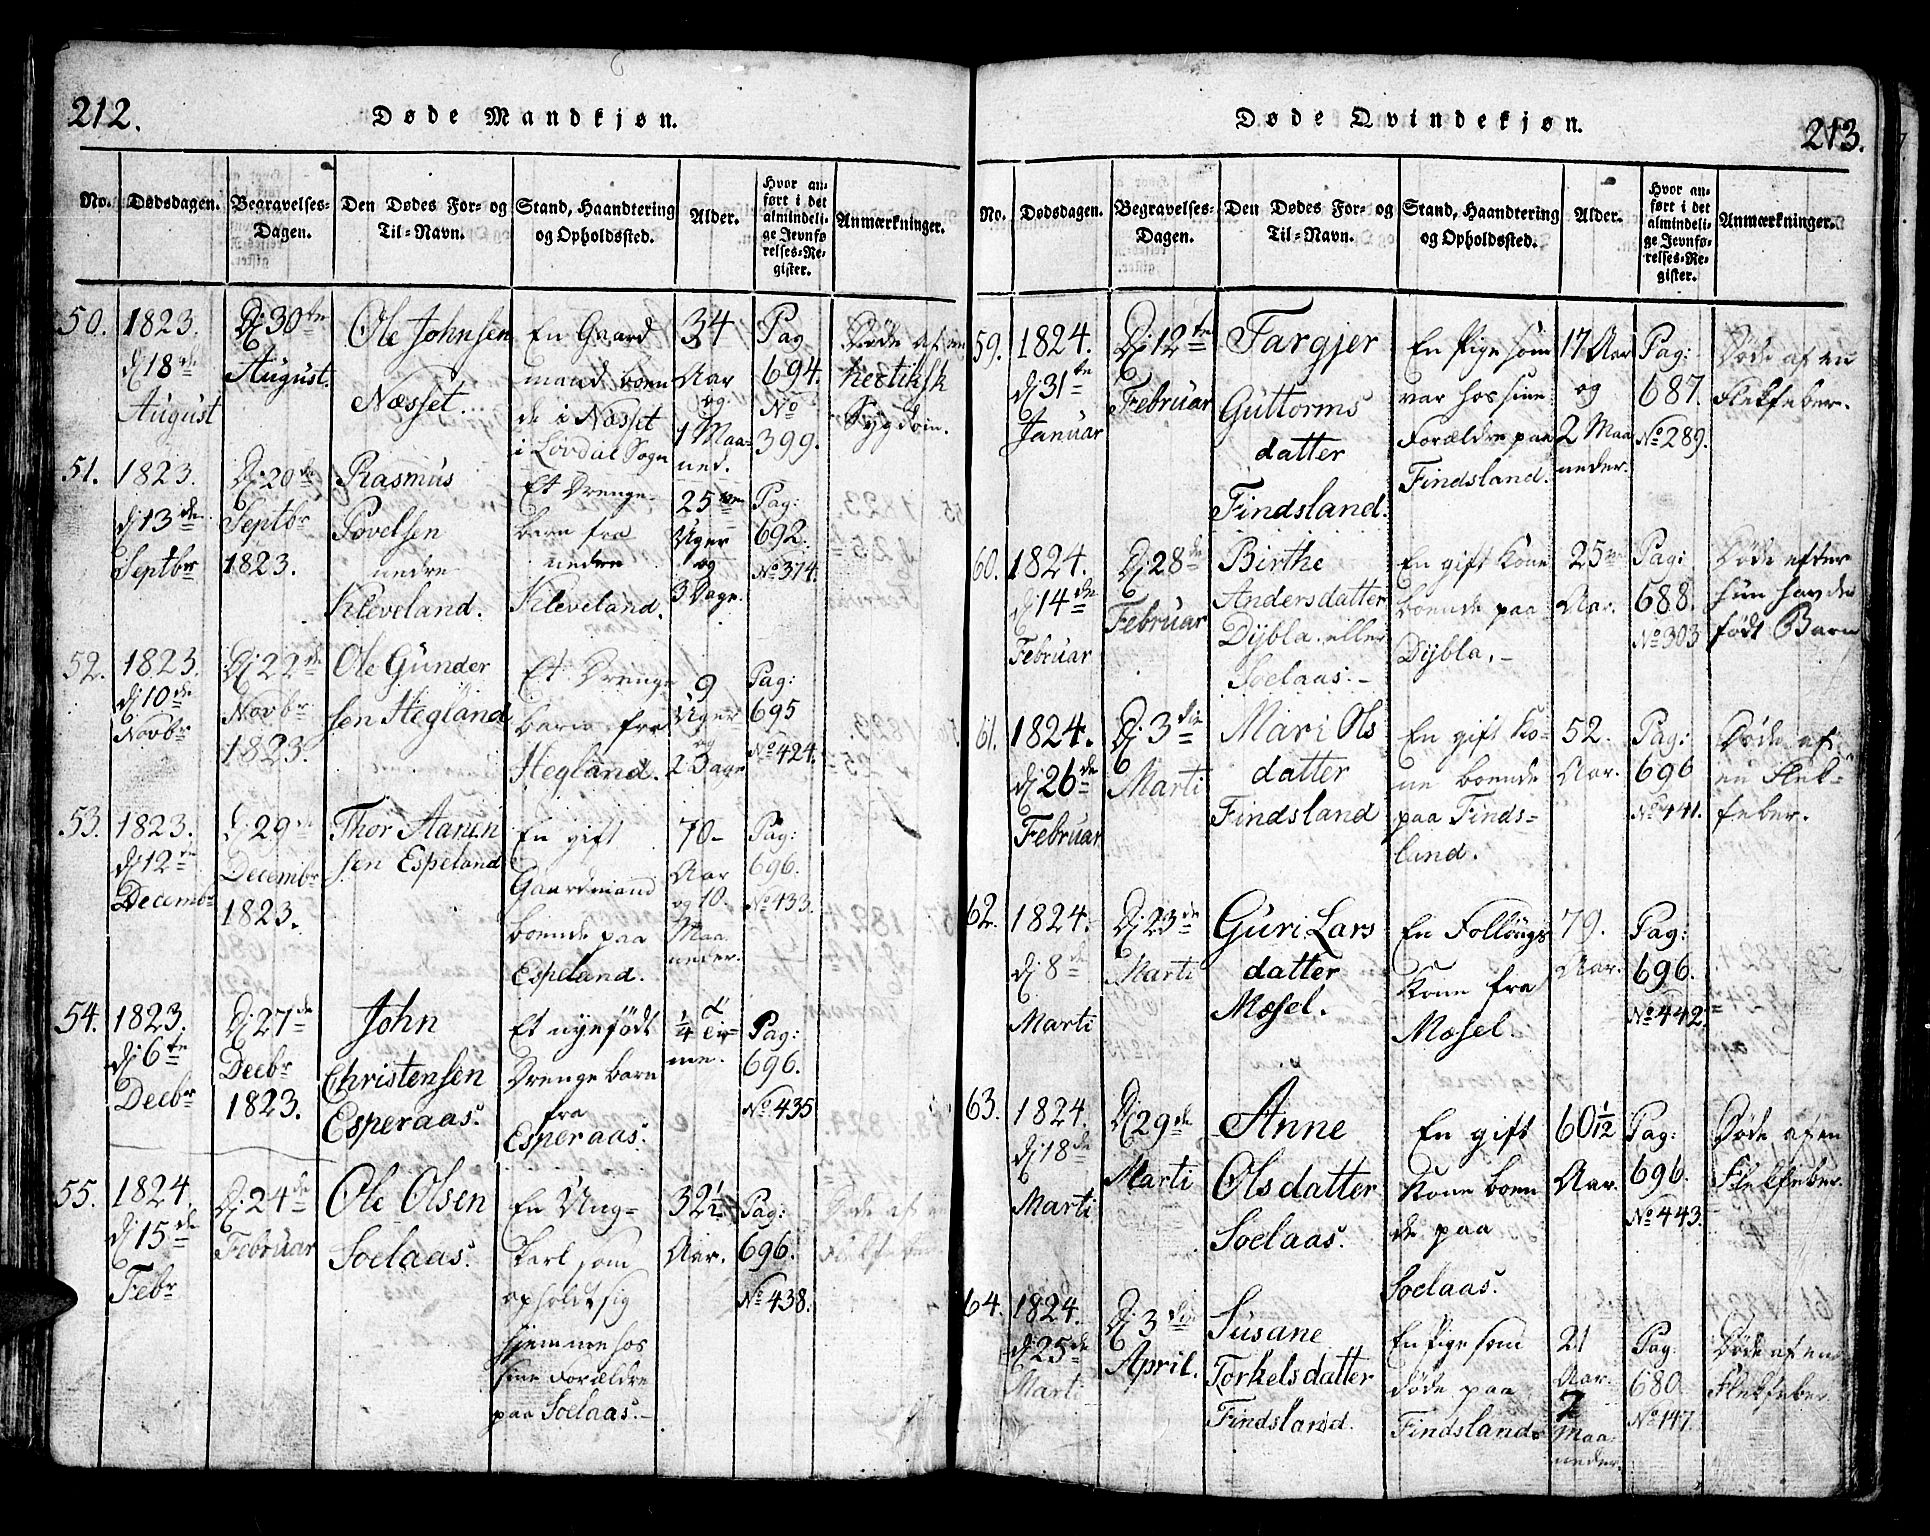 212.
Døde Mandkjøn.
No.
Dødsdagen.
Begravelses-
Dagen.
Den Dødes For- og
Til-Navn.
Stand, Haandtering
og Opholdssted.
Alder.
Hvor an-
ført i det
almindeli-
ge Jevnfø-
relses-Re-
gister.
Anmærkninger.
50.
1823.
d 18de
August
D 30te
August.
Ole Johnsen
Næsset.
En Gaard
mand boen
de i Næsset
i Lovdal Sogn
34
Aar
og
1 Maa-
ned.
Pag
694.
No
399.
Døde af en
hectiksk
Sygdom.
51.
1823.
d 13de
Septbr
D 20de
Septbr
1823.
Rasmus
Povelsen
nedre
Kleveland.
Et Drenge-
barn fra
nedre
Kleveland.
25
Uger
og
3 Dage.
Pag:
692.
No 374.
52.
1823.
d 10de
Novbr
D 22de
Novbr
1823.
Ole Gunder
sen Hegland
Et Drenge
barn fra
Hegland.
9
Uger
og
2 Dage
Pag:
695
No 424.
53.
1823.
d 12te
Decembr
D 29de
Decembr
1823.
Thor Aanen
sen Espeland
En gift
Gaardmand
boende paa
Espeland.
70
Aar
og 10
Maa
neder.
Pag:
696.
No 433.
54.
1823.
d 6te
Decbr
D 27de
Decbr
1823.
John
Christensen
Esperaas.
Et nyefødt
Drengebarn
fra
Esperaas.
1/4 Ti-
me.
Pag:
696.
No 435
55.
1824.
d 15de
Febr
D 24de
Februar
Ole Olsen
Soelaas.
En Ung-
karl som
opholdt sig
hjemme hos
sine Forældre
paa Soelaas.
32 1/2
Aar.
Pag:
696.
No 438.
Døde af
Flekfeber
Døde Qvindekjøn.
213.
No.
Dødsdagen.
Begravelses-
Dagen.
Den Dødes For- og
Til-Navn.
Stand, Haandtering
og Opholdssted.
Alder.
Hvor an-
ført i det
almindeli-
ge Jevnfø-
relses-Re-
gister.
Anmærkninger.
59.
1824.
d 31te
Januar
D 12te
Februar
Targjer
Guttorms
datter
Findsland.
En Pige som
var hos sine
Forældre paa
Findsland.
17 Aar
og
2 Maa
neder.
Pag:
687.
No 289.
Døde af en
Flekfeber.
60.
1824.
d 14de
Februar
D 28de
Februar
Birthe
Andersdatter
Dybla eller
Soelaas.
En gift Kone
boende paa
Dybla.
25
Aar.
Pag:
688.
No 303
Døde efter
hun havde
født Barn
61.
1824.
d 26de
Februar
D 3die
Marti
Mari Ols
datter
Findsland
En gift Ko-
ne boende
paa Finds-
land.
52.
Aar.
Pag:
696
No 441.
Døde af
en Flek-
feber.
62.
1824.
d 8de
Marti
D 23de
Marti
Guri Lars
datter
Mosel.
En Follougs
Kone fra
Mosel.
79.
Aar.
Pag:
696.
No 442.
63.
1824.
d 18de
Marti
D 29de
Marti
Anne
Olsdatter
Soelaas.
En gift
Kone boen
de paa
Soelaas.
60 1/12
Aar.
Pag:
696.
No 443.
Døde af en
Flekfeber.
64.
1824.
d 25de
Marti
D 3die
April.
Susane
Torkelsdatter
Findsland.
En Pige som
døde paa
Findsland
21
Aar
7
Maa
neder.
Pag:
680.
No 147.
Døde af en
Flekfeber